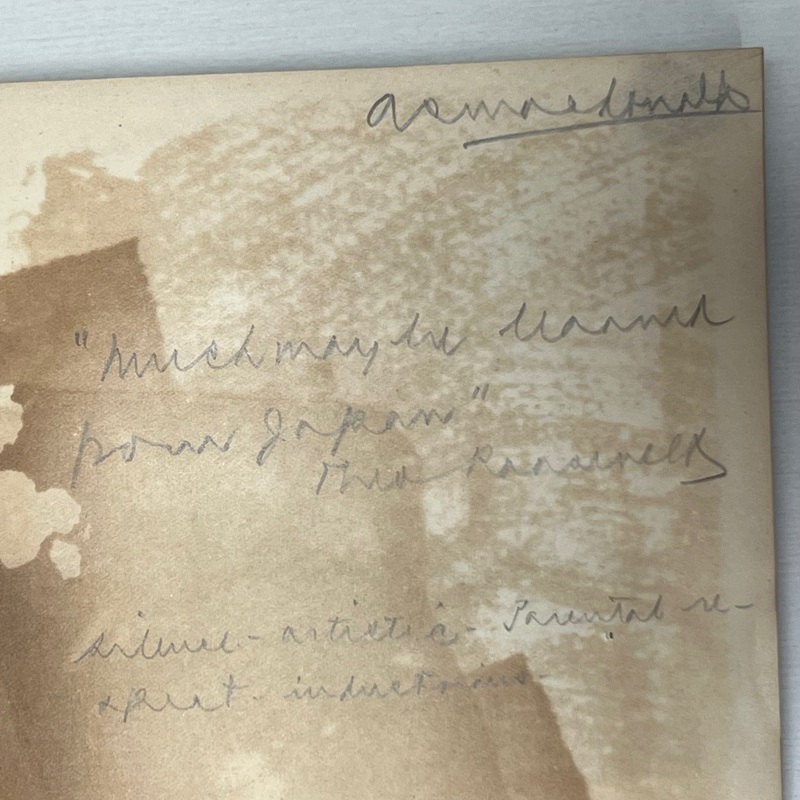 as macdonald
"Much may be learned
from Japan"
Theo Roosevelt
silence - artistic - Parental re-
spect - industrious -